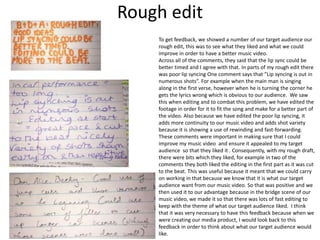 Rough edit
B+D+A: ROUGH EDIT:
GOOD IDEAS
LIP SYNCING COULD BE
BETTER TIMED.
EDITING COULD BE
MORE TO THE BEAT.
performance
too long.
Lip syncing is out
in numerous shots
Editing at start
great pace & cuts
to the beat nicely.
Variety of shots shown
early on
Good use of
jump cuts and
some
filter
up
scenes
To get feedback, we showed a number of our target audience our
rough edit, this was to see what they liked and what we could
improve in order to have a better music video.
Across all of the comments, they said that the lip sync could be
better timed and I agree with that. In parts of my rough edit there
was poor lip syncing One comment says that "Lip syncing is out in
numerous shots". For example when the main man is singing
along in the first verse, however when he is turning the corner he
gets the lyrics wrong which is obvious to our audience. We saw
this when editing and to combat this problem, we have edited the
footage in order for it to fit the song and make for a better part of
the video. Also because we have edited the poor lip syncing, it
adds more continuity to our music video and adds shot variety
because it is showing a use of rewinding and fast-forwarding.
These comments were important in making sure that I could
improve my music video and ensure it appealed to my target
audience so that they liked it . Consequently, with my rough draft,
there were bits which they liked, for example in two of the
comments they both liked the editing in the first part as it was cut
to the beat. This was useful because it meant that we could carry
on working in that because we know that it is what our target
audience want from our music video. So that was positive and we
then used it to our advantage because in the bridge scene of our
music video, we made it so that there was lots of fast editing to
keep with the theme of what our target audience liked. I think
that it was very necessary to have this feedback because when we
were creating our media product, I would look back to this
feedback in order to think about what our target audience would
like.